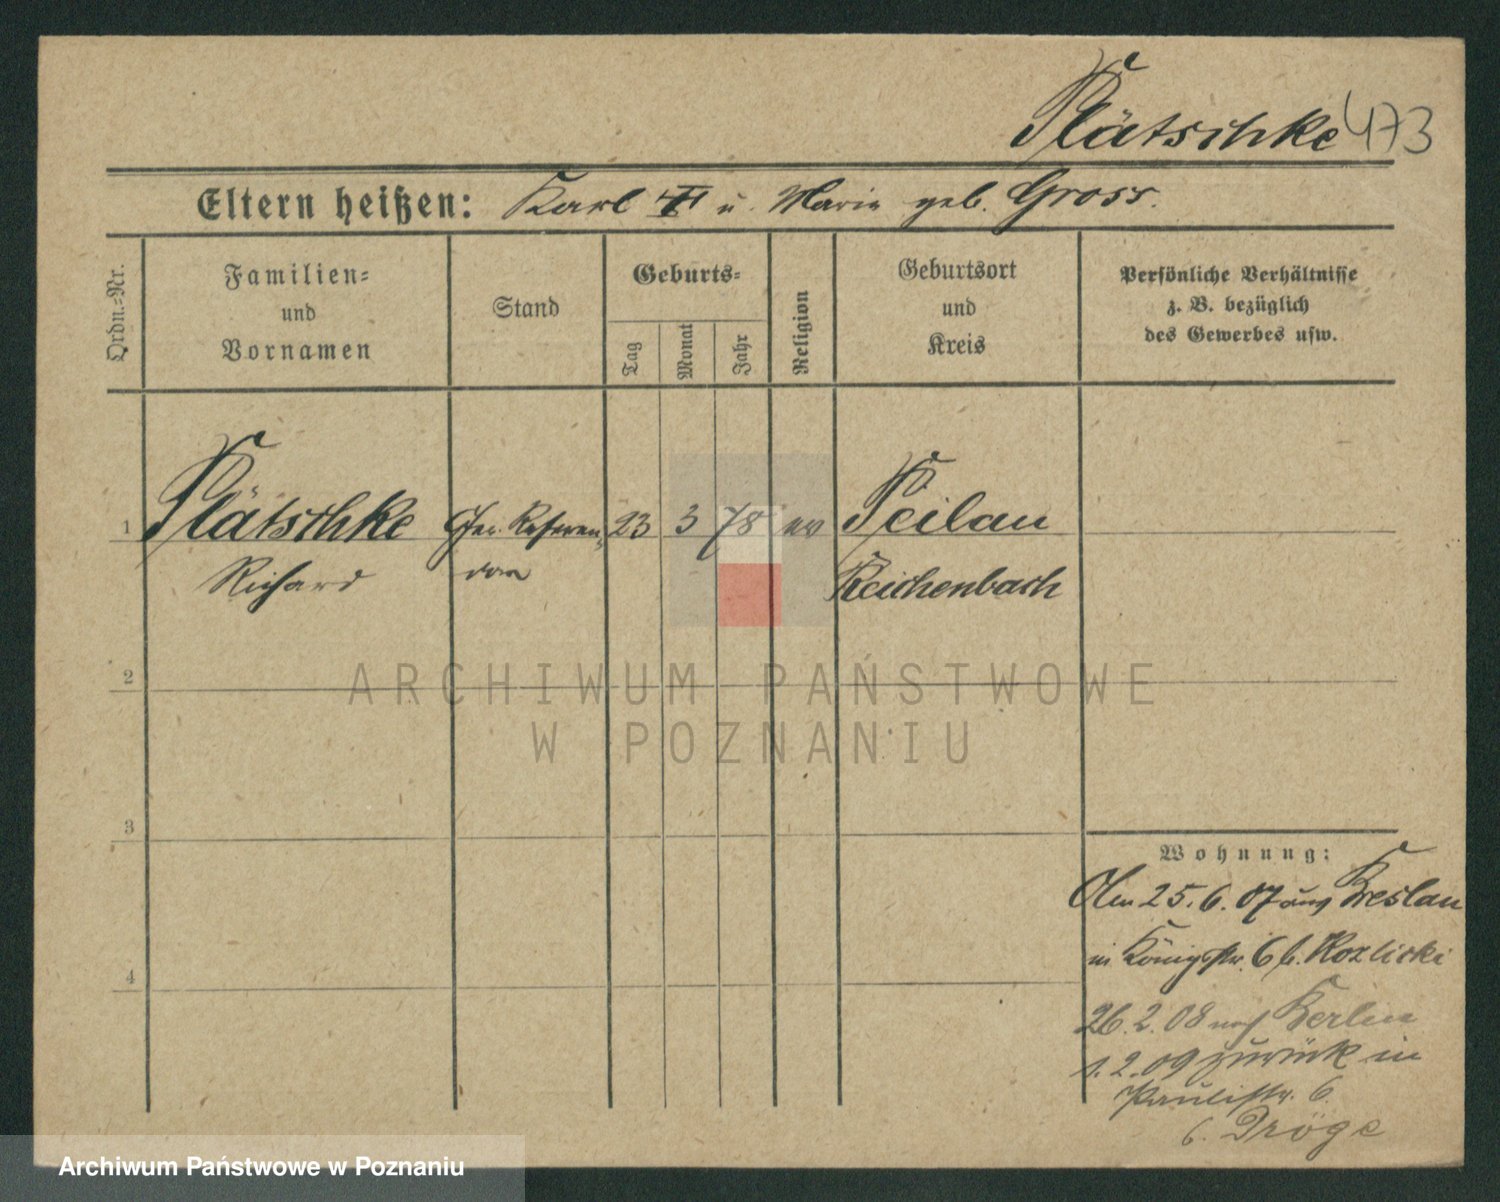 Plätschke 473
Eltern heißen: Karl u. Marie geb. Gross.
Ordn.=Nr.
Familien=
und
Vornamen
Stand
Geburts=
Tag
Monat
Jahr
Religion
Geburtsort
und
Kreis
Persönliche Verhältnisse
z. B. bezüglich
des Gewerbes usw.
1 Plätschke Ger. Referen 23 3 78 ev Peilau
Richard dar Reichenbach
2
ARCHIWUM PAŃSTWOWE
W POZNANIU
3
4
Wohnung:
Am 25.6.07 aus Breslau
in Königstr. 6 b. Kozlicki
26.2.08 nach Berlin
1.2.09 zurück in
Paulistr. 6
b. Dröge
Archiwum Państwowe w Poznaniu